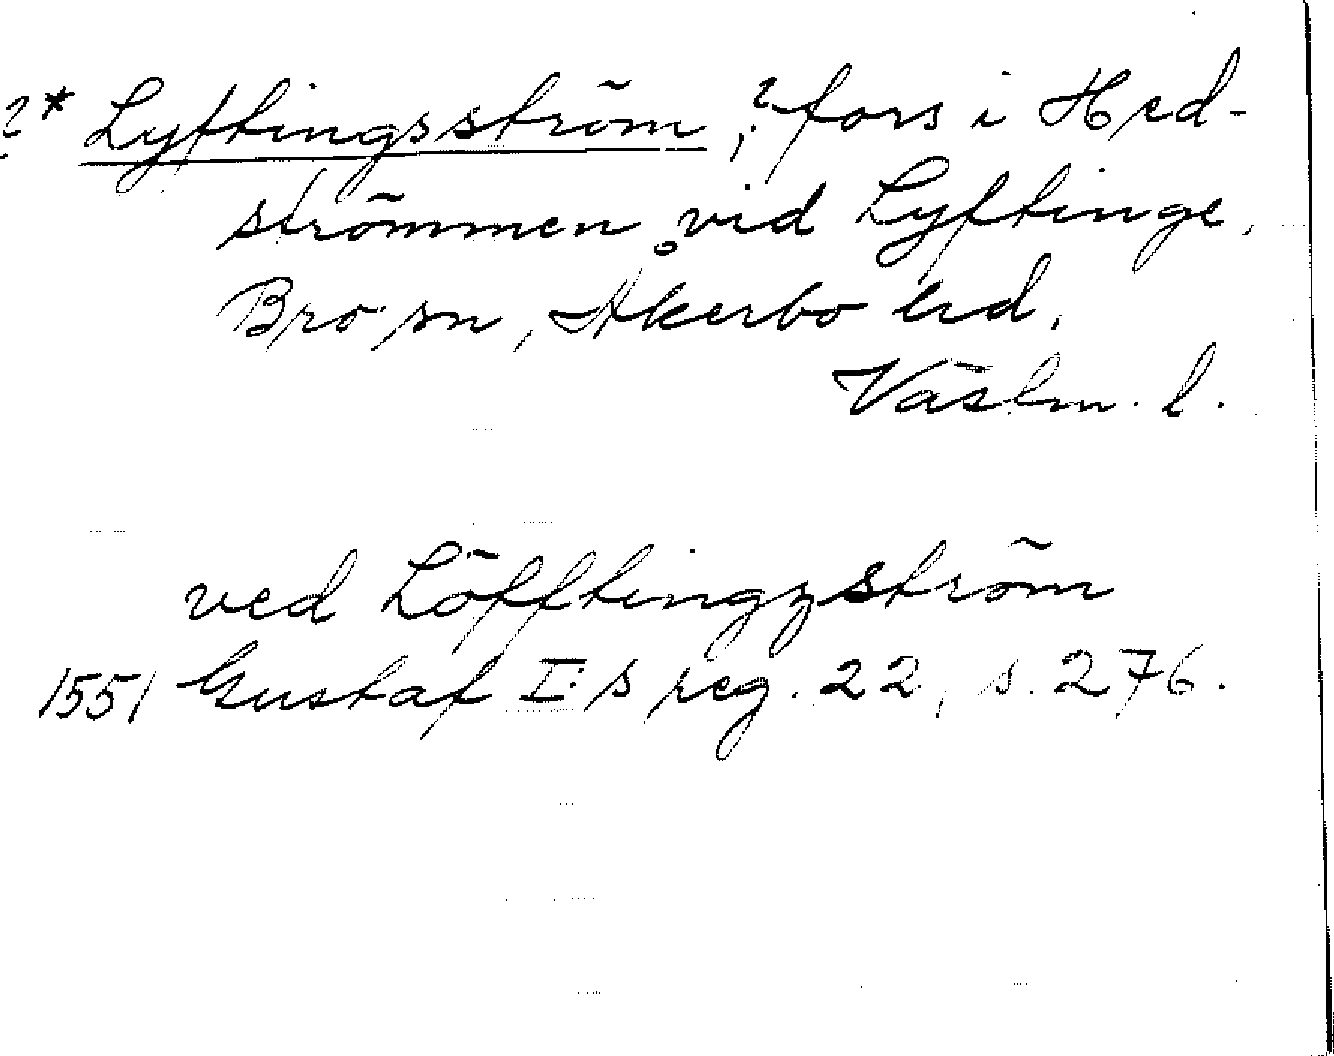 ?* Lyftingsström, ?fors i Hed-
strömmen vid Lyftinge,
Bro sn, Åkerbo hd,
Västm. l.
ved Löfftingzström
1551 Gustaf I:s reg. 22, s. 276.